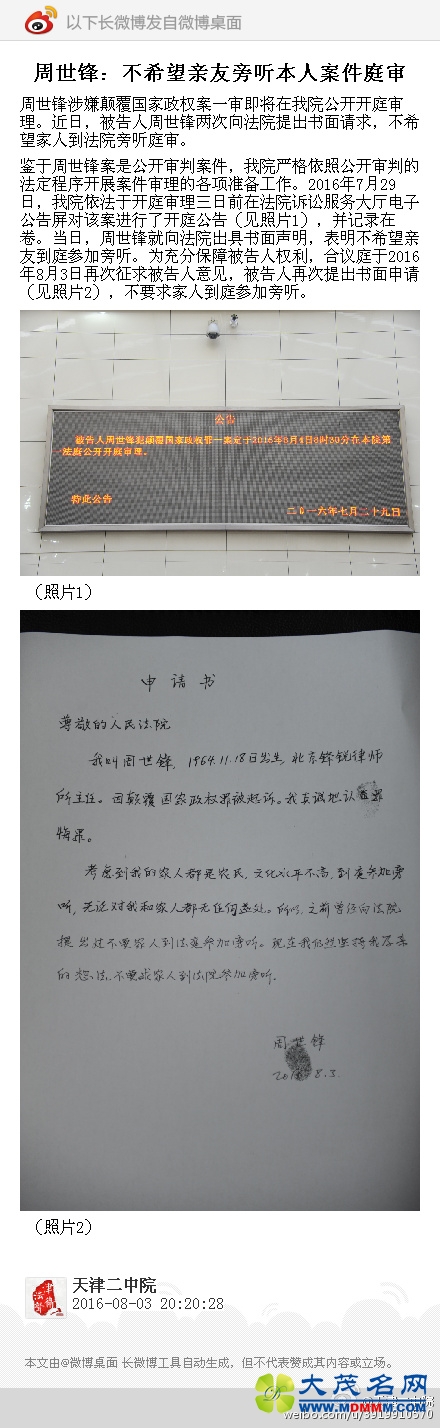 以下长微博发自微博桌面
周世锋：不希望亲友旁听本人案件庭审
周世锋涉嫌颠覆国家政权案一审即将在我院公开开庭审
理。近日，被告人周世锋两次向法院提出书面请求，不希
望家人到法院旁听庭审。
鉴于周世锋案是公开审判案件，我院严格依照公开审判的
法定程序开展案件审理的各项准备工作。2016年7月29
日，我院依法于开庭审理三日前在法院诉讼服务大厅电子
公告屏对该案进行了开庭公告（见照片1），并记录在
卷。当日，周世锋就向法院出具书面声明，表明不希望亲
友到庭参加旁听。为充分保障被告人权利，合议庭于2016
年8月3日再次征求被告人意见，被告人再次提出书面申请
（见照片2），不要求家人到庭参加旁听。
公告
被告人周世锋犯颠覆国家政权罪一案定于2016年8月4日8时30分在本院第
法庭公开开庭审理。
特此公告
二0一六年七月二十九日
（照片1）
申请书
尊敬的人民法院
我叫周世锋，1964.11.18日出生，北京锋锐律师
所主任。因颠覆国家政权罪被起诉。我真诚地认罪
悔罪。
考虑到我的家人都是农民，文化水平不高，到庭参加旁
听，无论对我和家人都无任何益处。所以，之前曾经向法院
提出过不要家人到法庭参加旁听。现在我仍然坚持我原来
的想法，不要求家人到法院参加旁听。
周世锋
2016.8.3.
（照片2）
天津二中院
2016-08-03 20:20:28
本文由@微博桌面 长微博工具自动生成，但不代表赞成其内容或立场。
大茂名网
www.MDMMM.com
weibo.com/u/3919910570